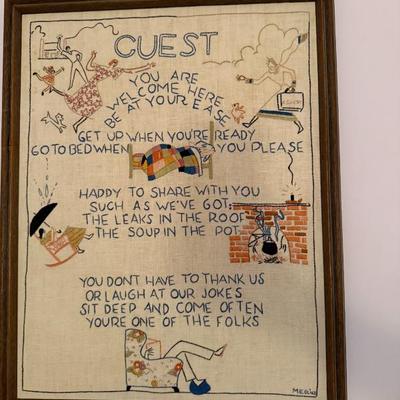 GUEST
YOU ARE
WELCOME HERE
BE AT YOUR EASE
GET UP WHEN YOU'RE READY
GO TO BED WHEN YOU PLEASE
HAPPY TO SHARE WITH YOU
SUCH AS WE'VE GOT
THE LEAKS IN THE ROOF
THE SOUP IN THE POT
YOU DONT HAVE TO THANK US
OR LAUGH AT OUR JOKES
SIT DEEP AND COME OFTEN
YOURE ONE OF THE FOLKS